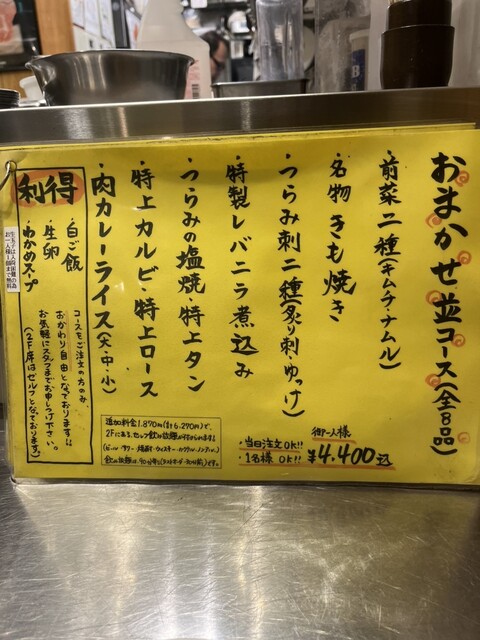 おまかせ並コース(全8品)
・前菜二種(キムチ・ナムル)
・名物きも焼き
・つらみ刺二種(炙り刺・ゆっけ)
・特製レバニラ煮込み
・つらみの塩焼・特上タン
・特上カルビ・特上ロース
・肉カレーライス(大・中・小)
御一人様
¥4.400込
・当日注文OK!!
・1名様 OK!!
追加料金1.870(計6.270円)で、
2Fにあるセルフ飲み放題が付けられます
飲み放題は、90分
利得
・白ご飯
・生卵
・わかめスープ
コースをご注文の方のみ、
おかわり自由となっております。
お気軽にスタッフまでお申しつけ下さい。
(2F席はセルフとなっております。)